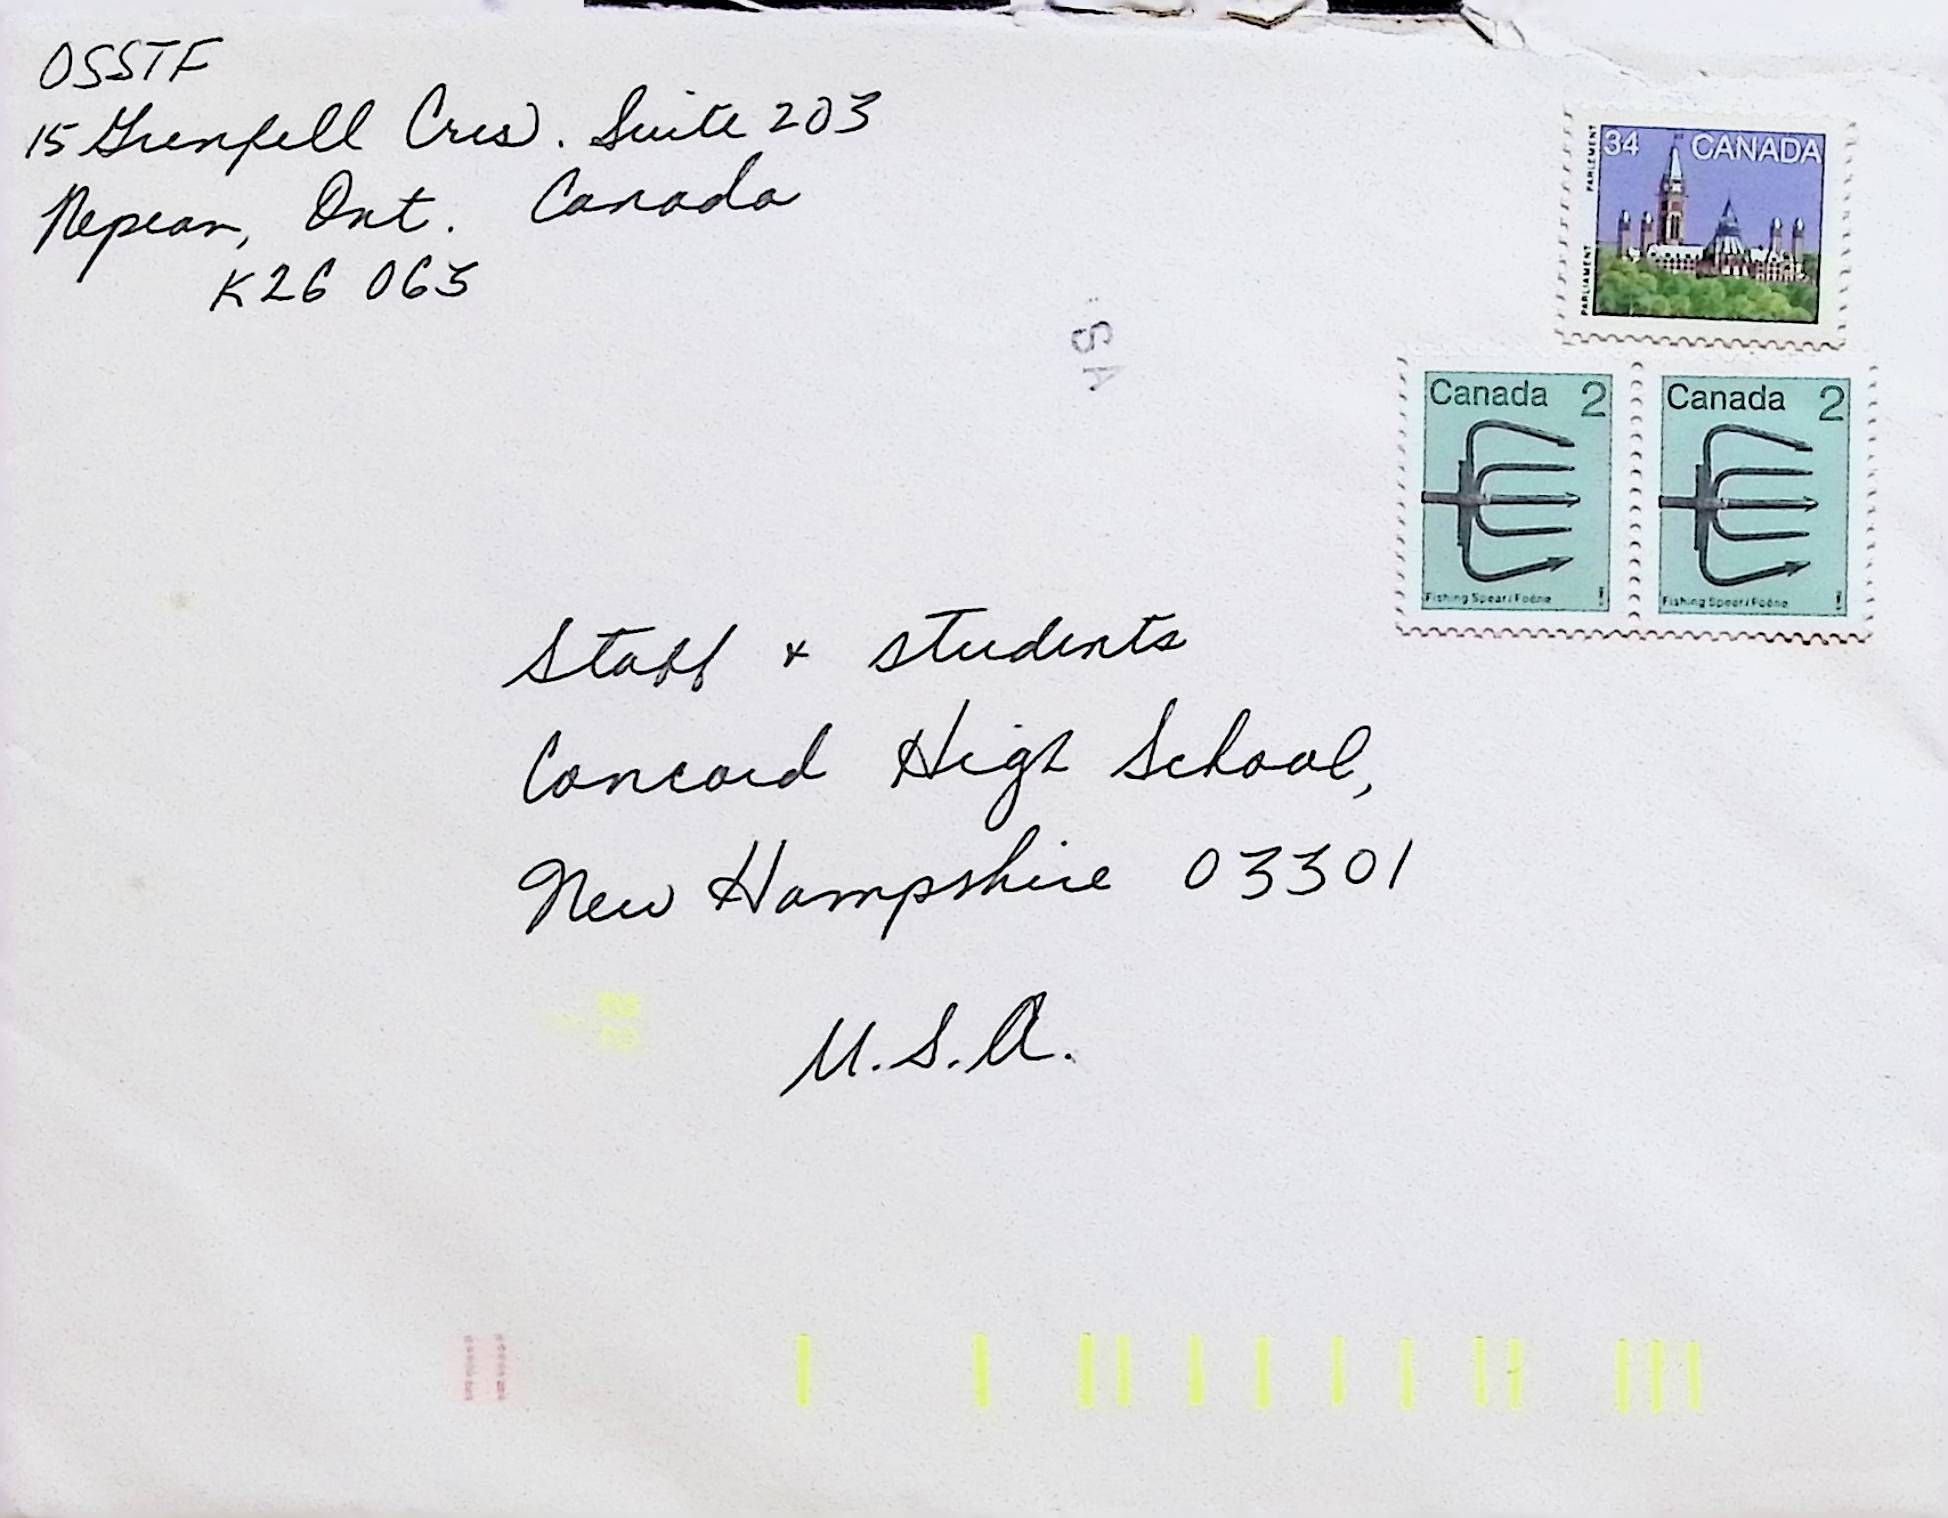 OSSTF
15 Grenfell Cres. Suite 203
Nepean, Ont. Canada
K2G 0G3
34 CANADA
PARLIAMENT PARLEMENT
Canada 2
Fishing Spear / Foëne
Canada 2
Fishing Spear / Foëne
Staff & students
Concord High School,
New Hampshire 03301
U.S.A.